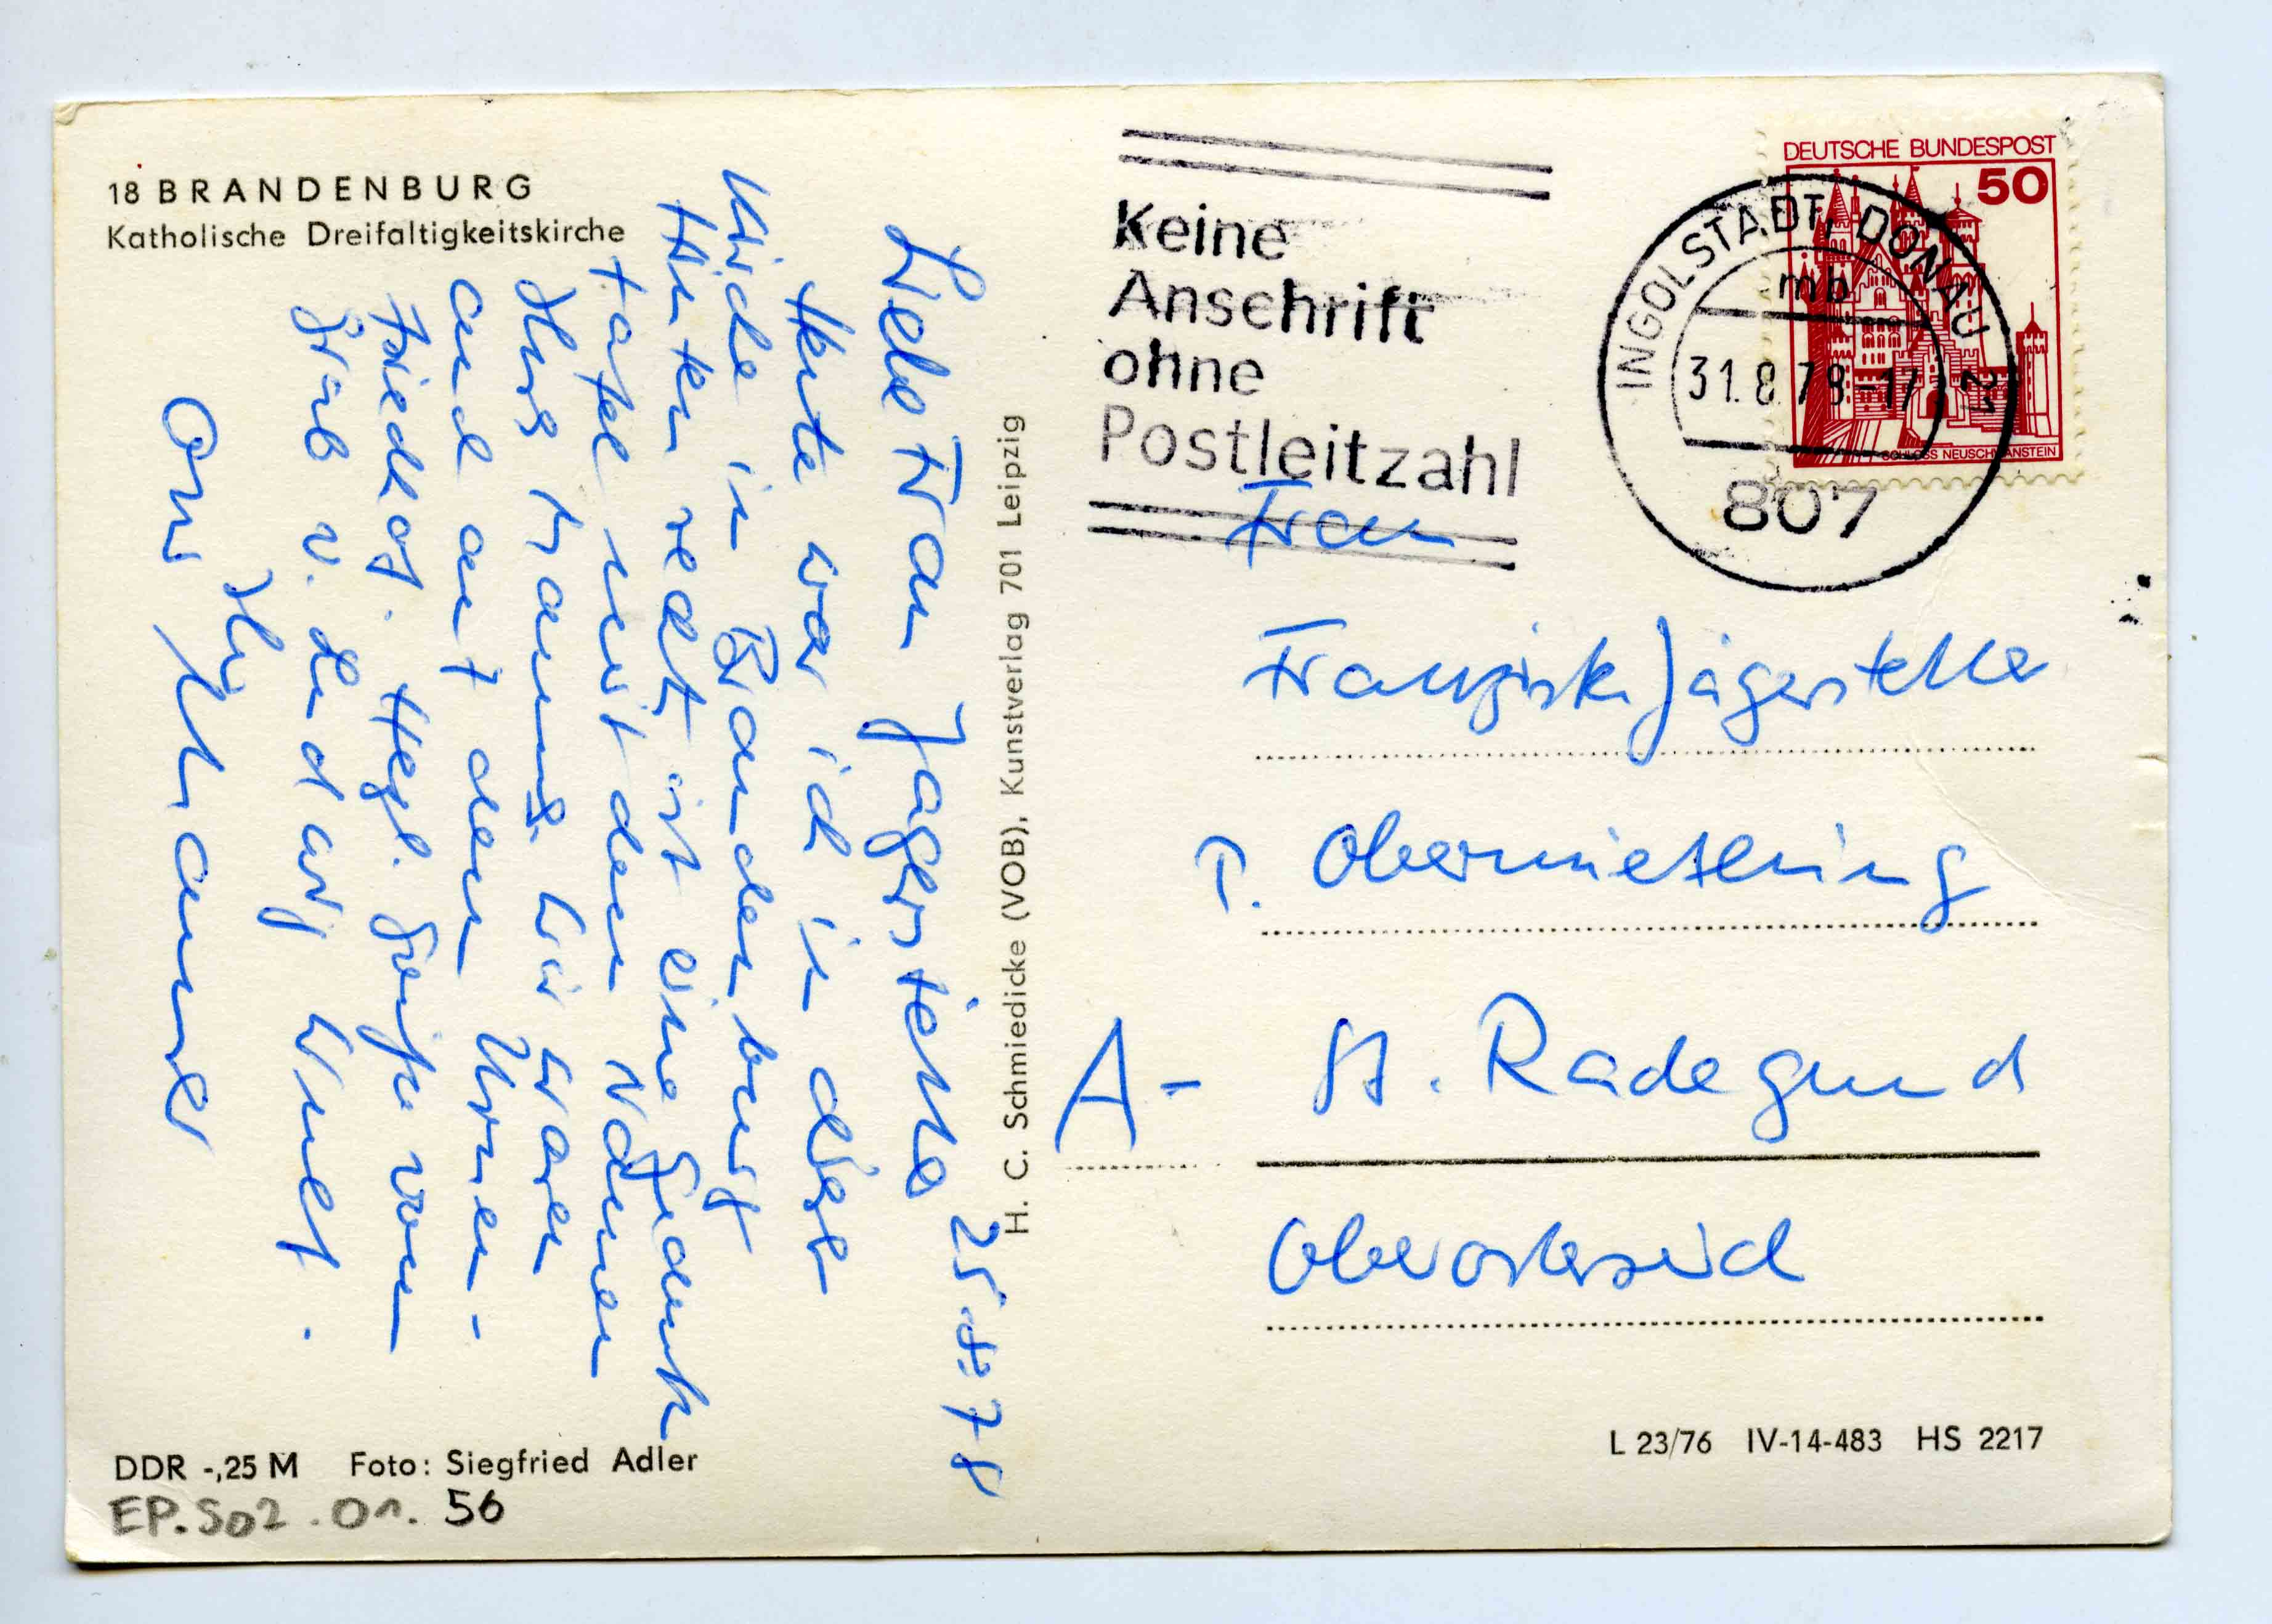 18 BRANDENBURG
Katholische Dreifaltigkeitskirche
25.8.78
Liebe Frau Jägerstätter
Heute war ich in dieser
Kirche in Brandenburg
Hinten rechts ist eine Gedenk
tafel mit den Namen
Ihres Mannes. Wir waren
auch auf dem Urnen-
friedhof. Herzl. Grüße vom
Grab v.
Ihr
H. C. Schmiedicke (VOB), Kunstverlag 701 Leipzig
DDR -,25 M Foto: Siegfried Adler
EP.S02.01.56
Keine
Anschrift
ohne
Postleitzahl
DEUTSCHE BUNDESPOST
50
SCHLOSS NEUSCHWANSTEIN
INGOLSTADT, DONAU 21
mb
31.8.78-17
807
Frau
Franziska Jägerstätter
P. Obermiething
A- St. Radegund
Oberösterreich
L 23/76 IV-14-483 HS 2217